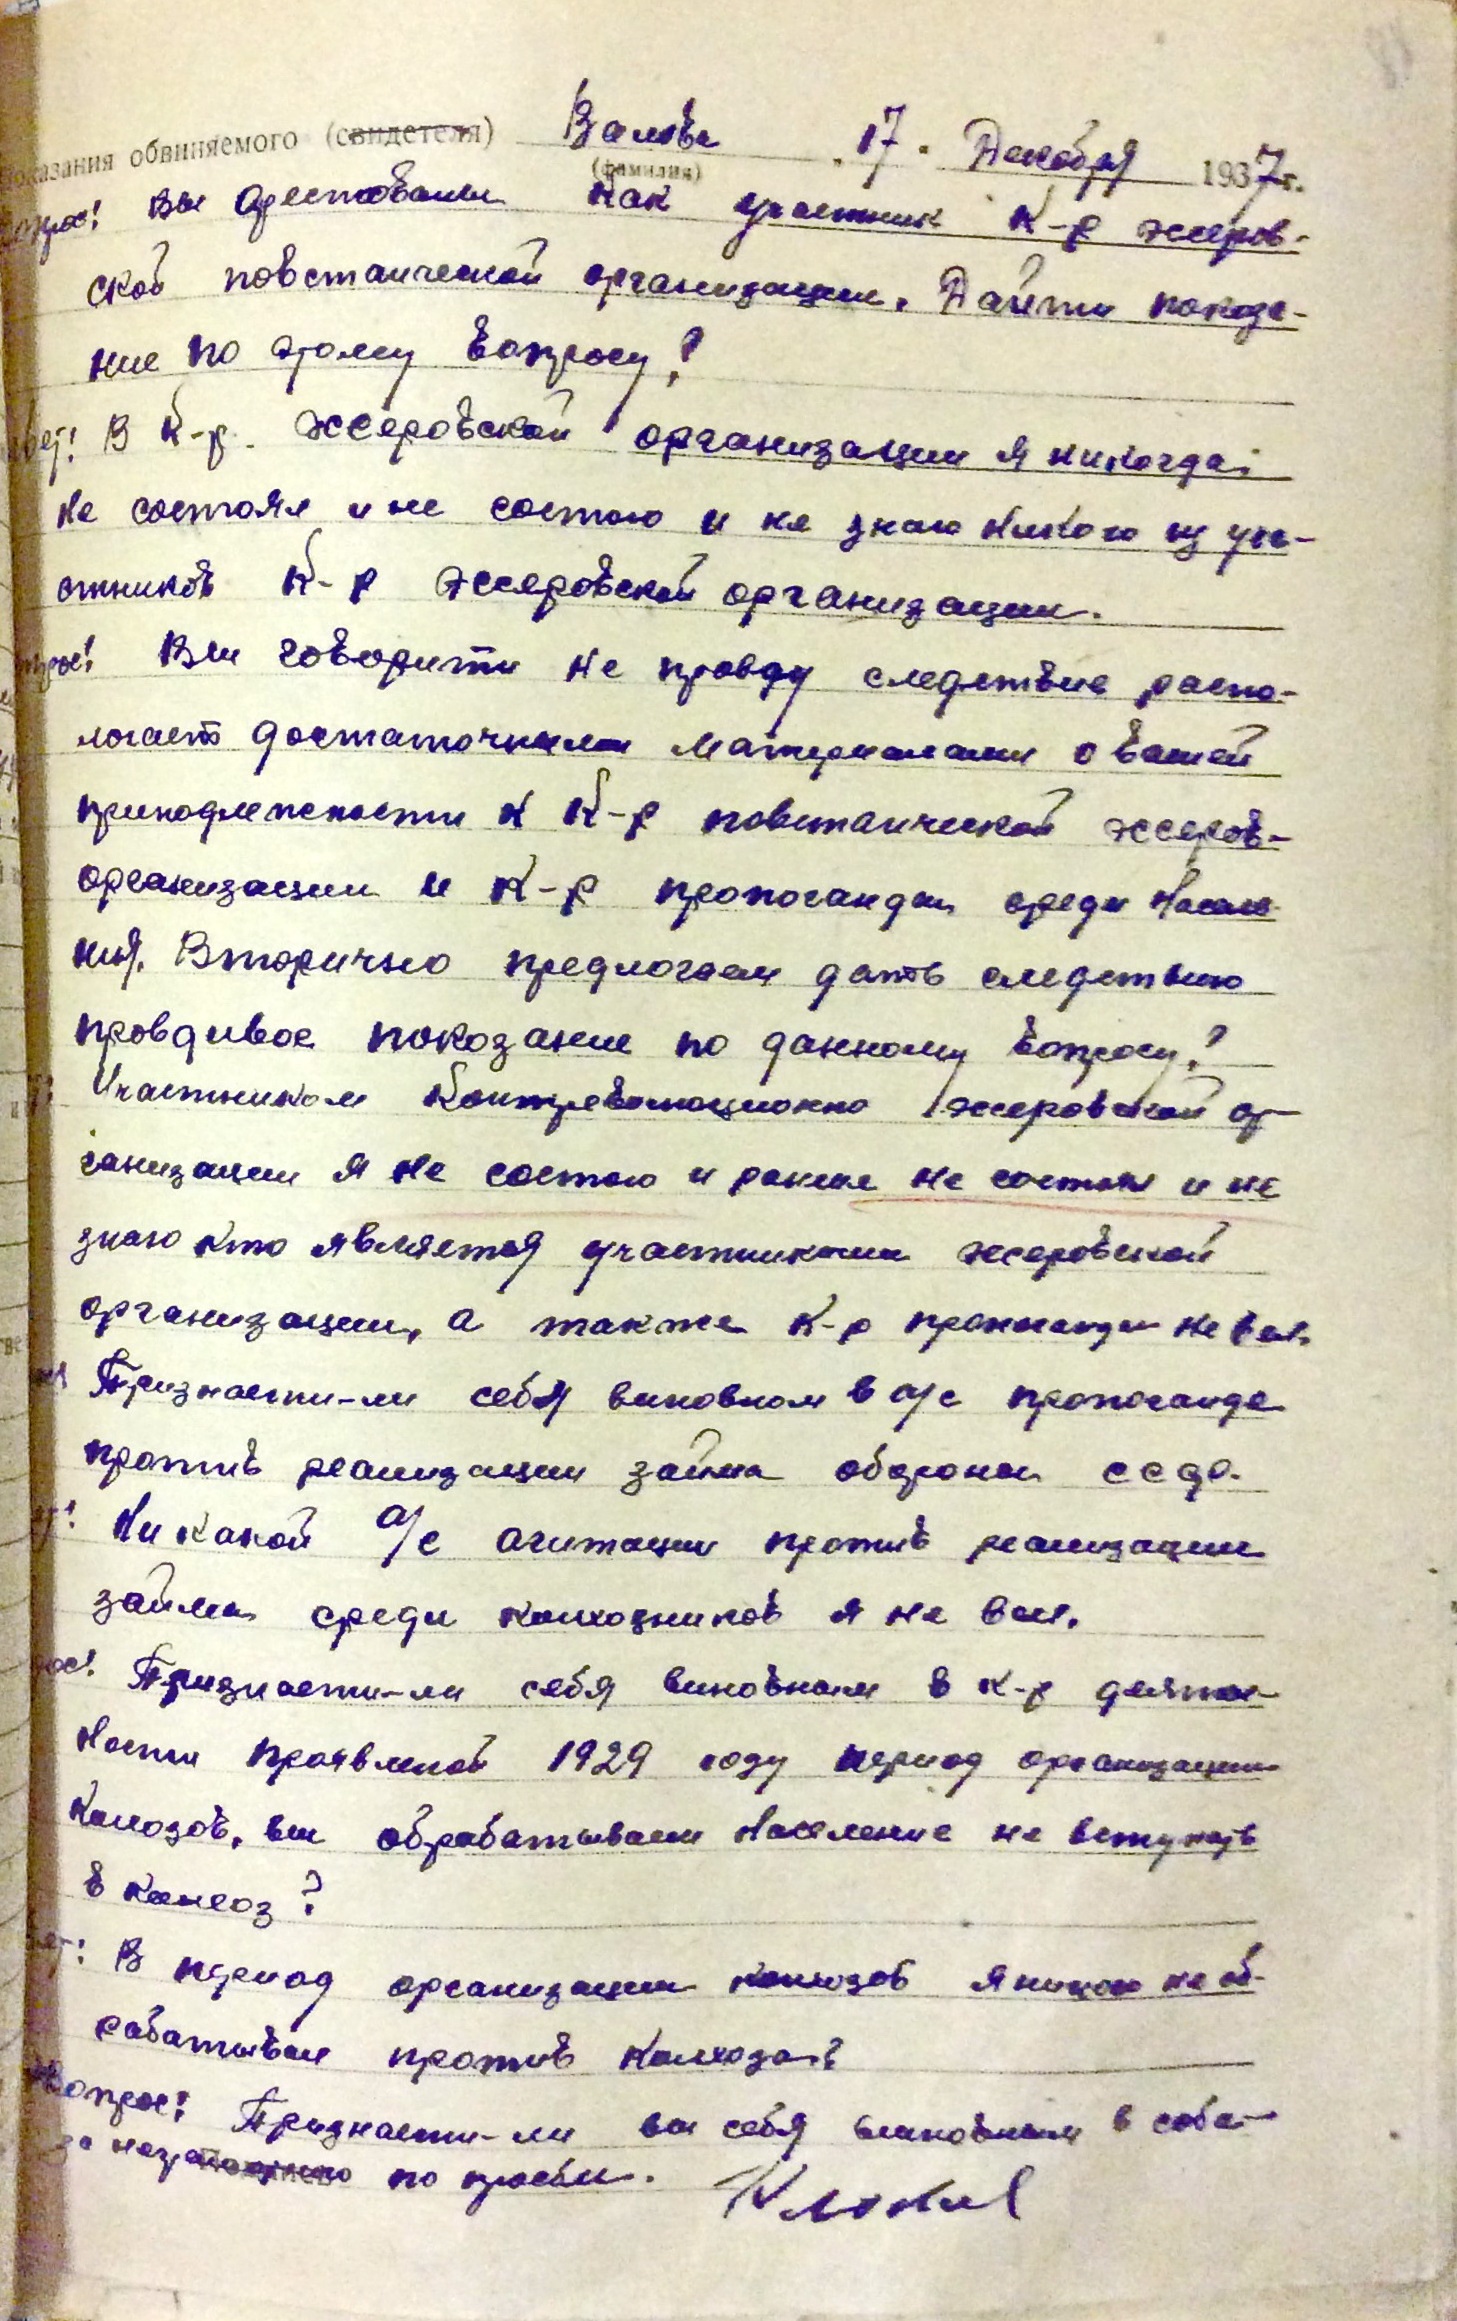 Показания обвиняемого (свидетеля) Валова 17 Декабря 1937г.
(фамилия)
Вопрос! Вы Арестованы как участник К-р эсеров-
ской повстанческой организации. Дайти показа-
ние по этому вопросу?
Ответ! В К-р. эсеровской организации я никогда
не состоял и не состою и не знаю никого из уча-
стников К-р эсеровской организации.
Вопрос! Вы говорити не правду следствие распо-
логает достаточными материалами о вашей
принодлежности к К-р повстанческой эсеров-
организации и К-р пропоганды среди населе-
ния. Вторично предлогаем дать следствию
провдивое показание по данному вопросу?
Участником контрреволюционно эсеровской ор-
ганизации я не состою и ранше не состоял и не
знаю кто является участниками эсеровской
организации, а также К-р пропоганды не вел.
Признаети-ли себя виновном в а/с пропоганде
против реализации займа обороны СССР.
Ни какой а/с агитации против реализации
займа среди колхозников я не вел.
Признаети-ли себя виновным в к-р деятел-
ности проявленой 1929 году период организации
Колхозов, вы обрабатывали население не вступать
в колхоз?
Ответ! В период организации колхозов я никого не об-
рабатывал против колхозов
Вопрос! Признаети-ли вы себя виновным в
по